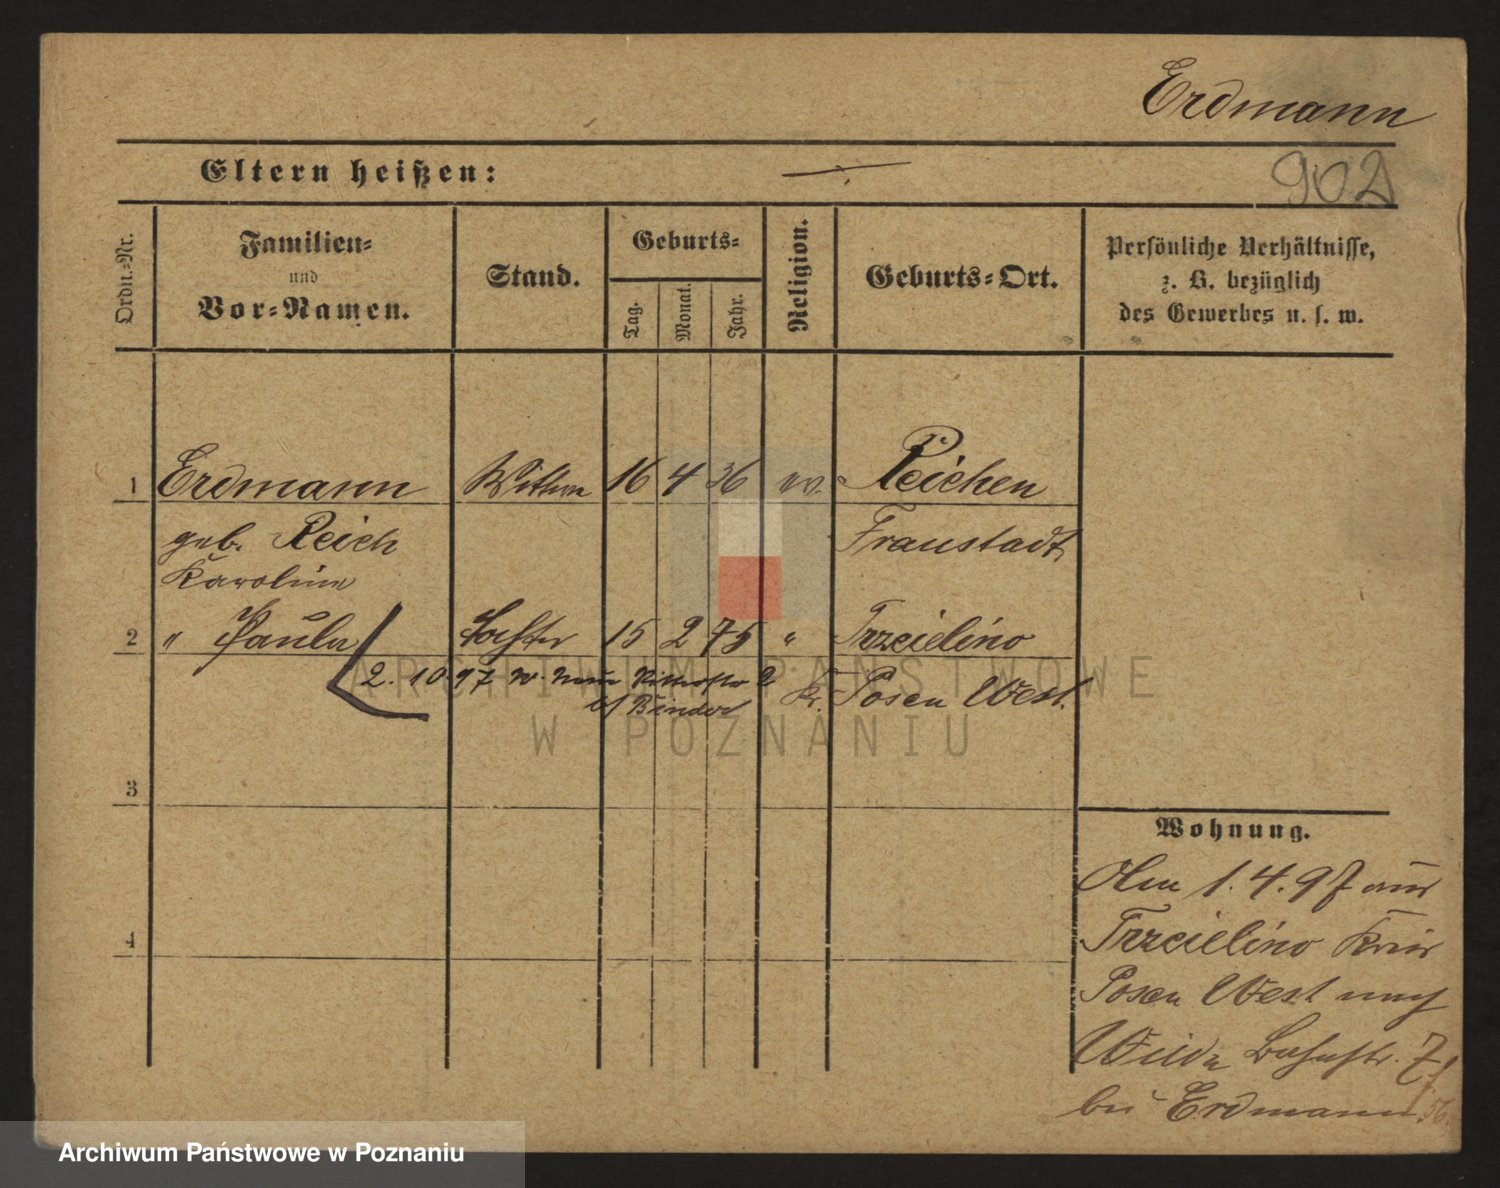 Erdmann
Eltern heißen:
902
Ordn.-Nr.
Familien-
und
Vor-Namen.
Stand.
Geburts-
Tag.
Monat.
Jahr.
Religion.
Geburts-Ort.
Persönliche Verhältnisse,
z. B. bezüglich
des Gewerbes u. s. w.
1 Erdmann Wittwe 16 4 36 ev. Reichen
geb. Reich Fraustadt
Karoline
2 " Paula Tochter 15 2 75 " Trzcielino
2. 10. 97 n. 2 Kr. Posen West.
b/ Binder
ARCHIWUM PAŃSTWOWE
W POZNANIU
3
4
Wohnung.
Am 1. 4. 97 aus
Trzcielino Kreis
Posen West nach
Wilda Bahnstr. 7
bei Erdmann
Archiwum Państwowe w Poznaniu